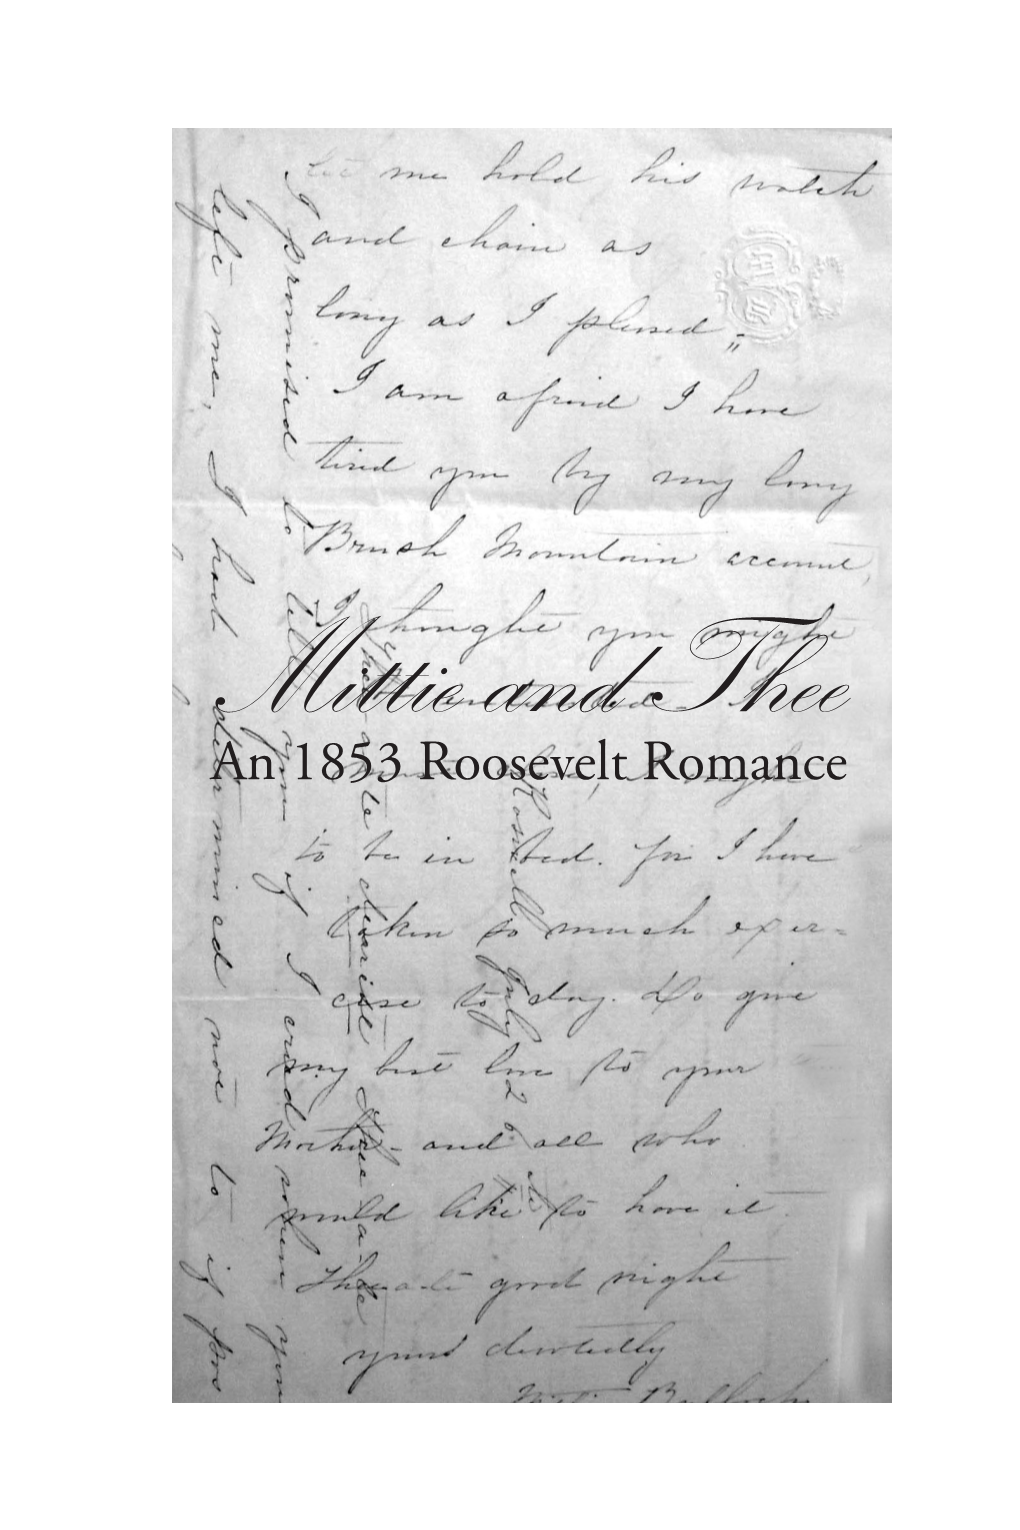 let me hold his watch
and chain as
long as I pleased"
I am afraid I have
tired you by my long
Brush Mountain account,
I thought you might
Mittie and Thee
An 1853 Roosevelt Romance
to be in bed. for I have
taken so much exer=
cise to day. Do give
my best love to your
Mother- and all who
would like to have it
Thee a-te good night
yours devotedly
Mittie Bulloch
left me, I had determined not to if for
I promised to tell you if I cried when you
Roswell July 26